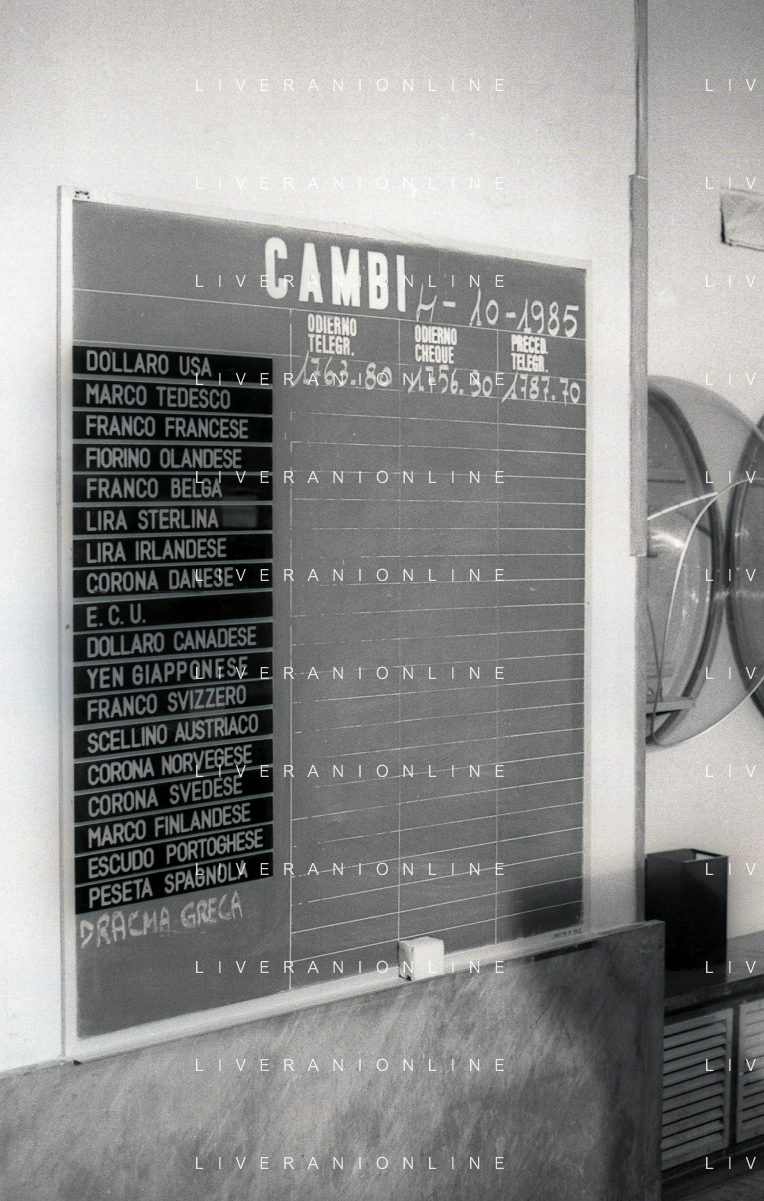 CAMBI
4-10-1985
ODIERNO TELEGR.
ODIERNO CHEQUE
PRECED. TELEGR.
DOLLARO USA 1763.80 1756.30 1787.70
MARCO TEDESCO
FRANCO FRANCESE
FIORINO OLANDESE
FRANCO BELGA
LIRA STERLINA
LIRA IRLANDESE
CORONA DANESE
E.C.U.
DOLLARO CANADESE
YEN GIAPPONESE
FRANCO SVIZZERO
SCELLINO AUSTRIACO
CORONA NORVEGESE
CORONA SVEDESE
MARCO FINLANDESE
ESCUDO PORTOGHESE
PESETA SPAGNOLA
DRACMA GRECA
LIVERANIONLINE
LIVERANIONLINE
LIVERANIONLINE
LIVERANIONLINE
LIVERANIONLINE
LIVERANIONLINE
LIVERANIONLINE
LIVERANIONLINE
LIVERANIONLINE
LIVERANIONLINE
LIVERANIONLINE
LIVERANIONLINE